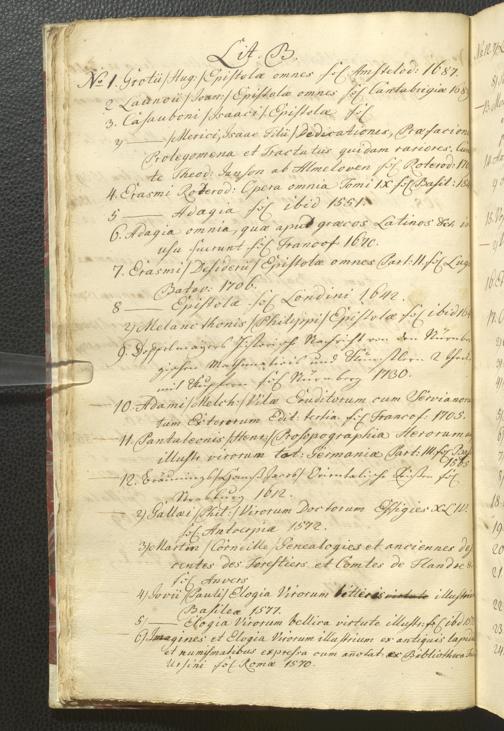 Lit. B.
No 1. Grotii /Hug./ Epistolæ omnes fol Amstelod: 1687.
2. /Joan:/ Epistolæ omnes fol Cantabrigiæ
3. Casauboni /Isaaci/ Epistolæ fol
2) —— /Merici, Isaac Filii/ Dedicationes, Præfation
Prolegomena et Tractatus quidam rariores,
te Theod: Janson ab Almeloven fol Roterod:
4. Erasmi Roterod: Opera omnia Tomi IX fol Basil:
5 —— Adagia fol ibid 1551.
6. Adagia omnia, quæ apud græcos Latinos &c. in
usu fuerunt fol Francof 1670.
7. Erasmi /Desiderii/ Epistolæ omnes Part: II fol Lug
Batav. 1706.
8 —— Epistolæ fol Londini 1642.
2) Melancthonis /Philippi/ Epistolæ fol ibid
9. Doppelmayers Historische Nachricht von den Nürnber
gischen Mathematicis und Künstlern 2
mit Kupfern fol Nürnberg 1730.
10. Adami /Melch:/ Vitæ Eruditorum cum Germanor
tum Exterorum Edit: tertia fol Francof: 1705.
11. Pantaleonis /Henr:/ Prosopographia Herorum
illustr: virorum tot: Germaniæ Part: III fol Bas
1565
12. Breünings /Hanß Jacob/ Orientalische Reisen fol
Strasburg 1612.
2) Gallæi /Phil:/ Virorum Doctorum Effigies XLIV.
fol Antverpiæ 1572.
3) Martin /Corneille/ Genealogies et anciennes des
centes des Forestiers et Comtes de Flandre
fol Anvers
4) Jovii /Pauli/ Elogia Virorum illustrium
Basileæ 1577.
5) —— Elogia Virorum bellica virtute illustr: fol ibid
6) Imagines et Elogia Virorum illustrium ex antiquis lapid
et numismatibus expressa cum annotat: ex Bibliotheca
Ursini fol Romæ 1570.